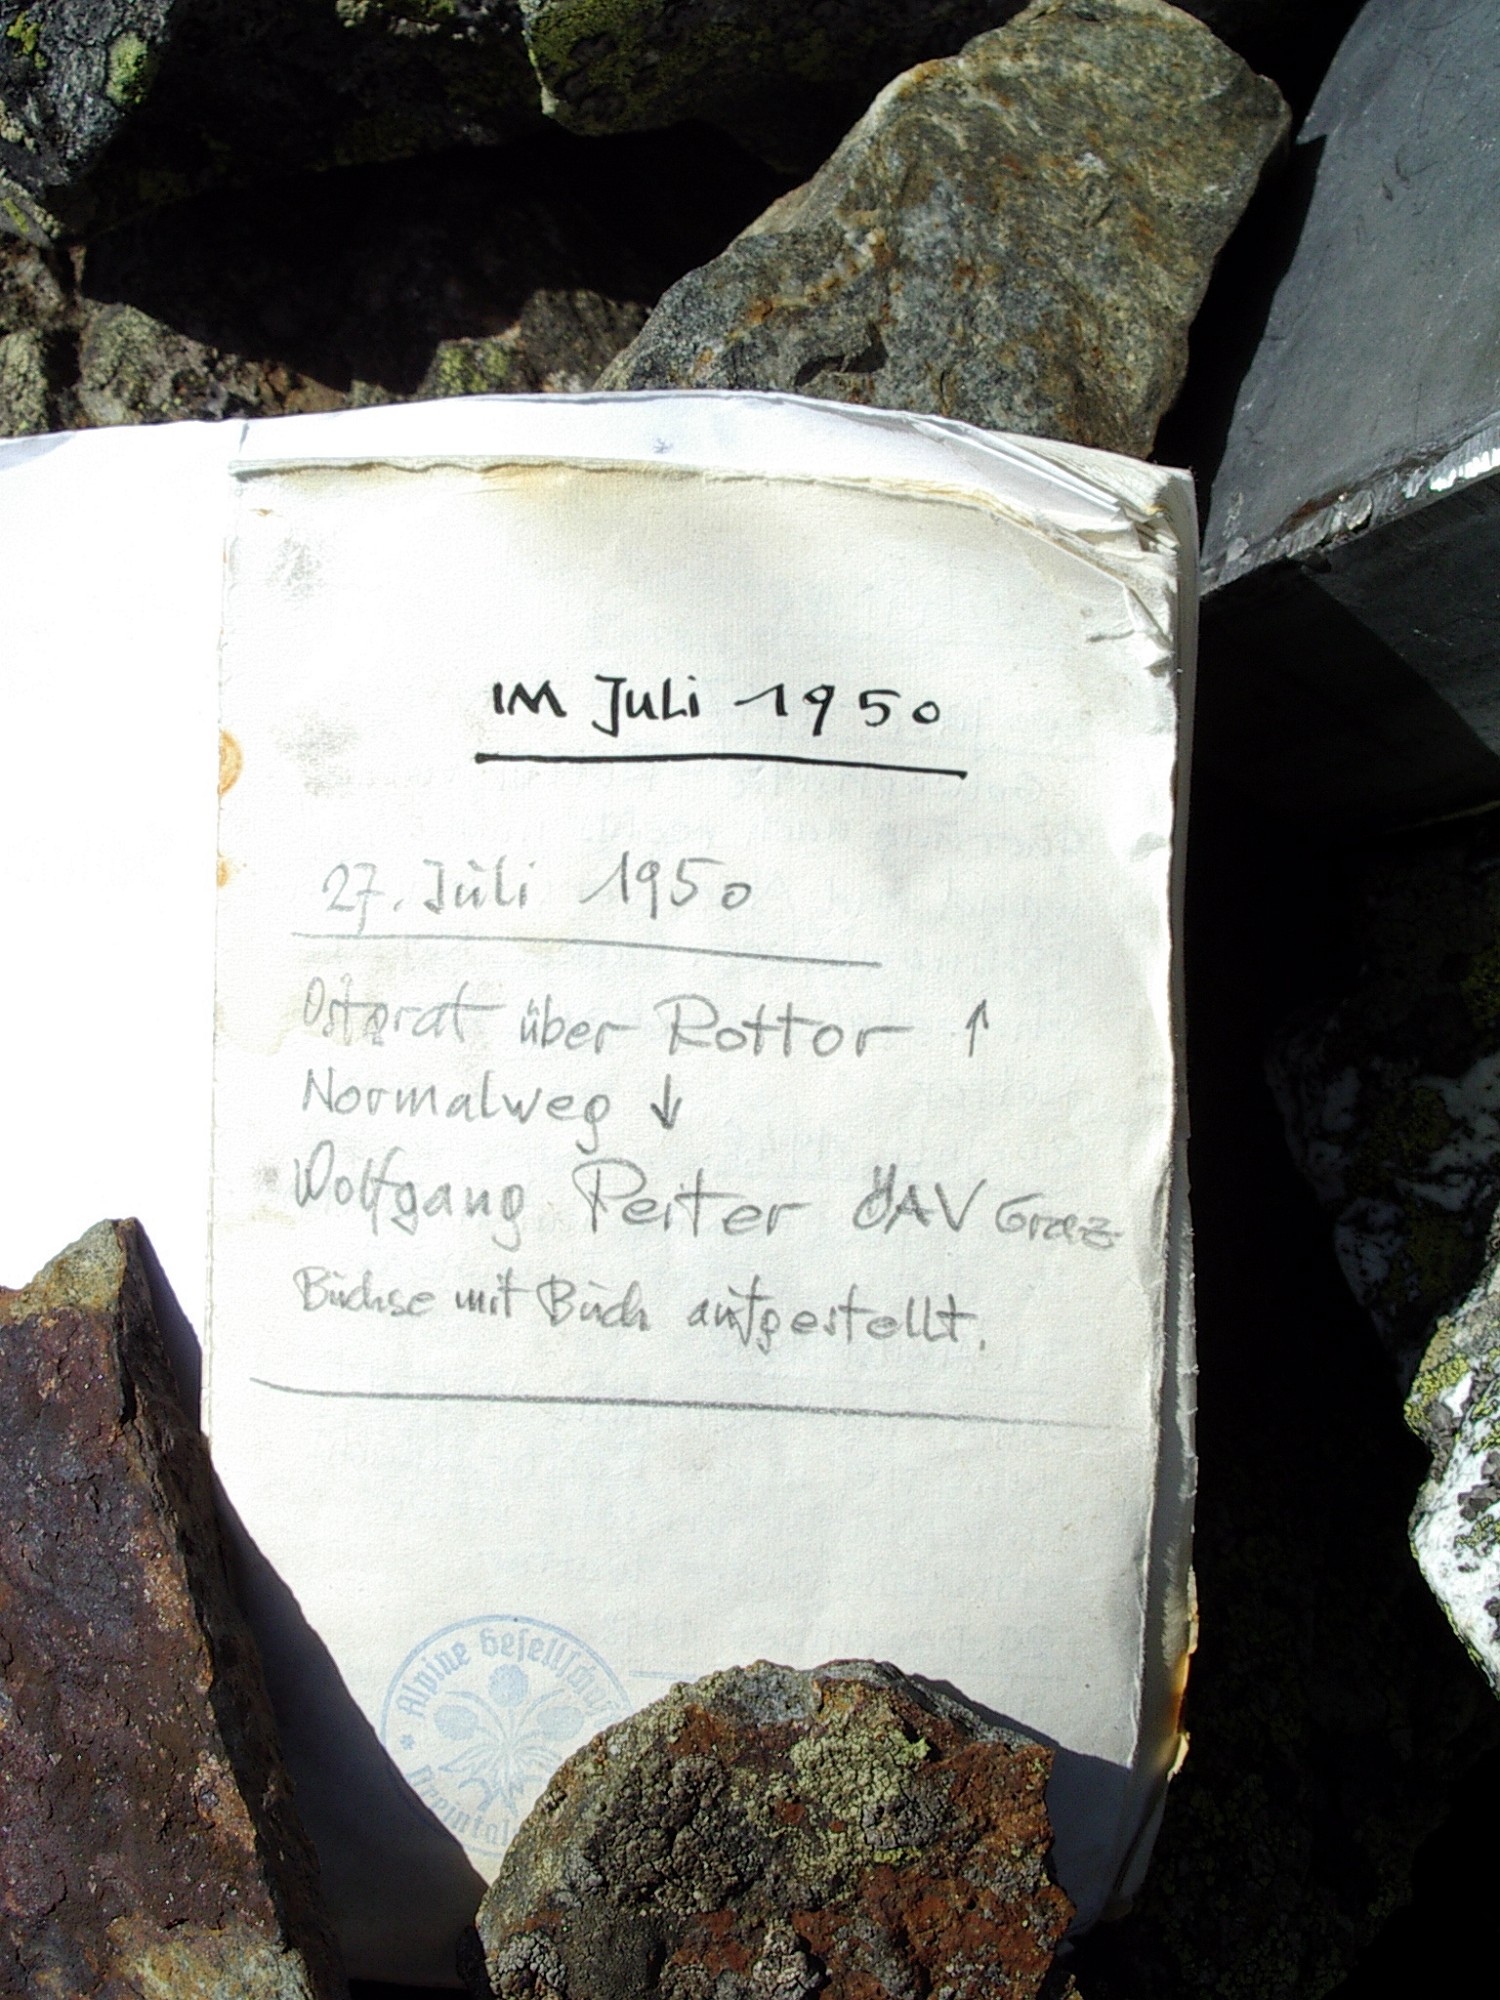 IM JULi 1950
27. Jŭli 1950
Ostgrat über Rottor ↑
Normalweg ↓
Wolfgang Reiter ÖAV Graz
Büchse mit Bŭch aŭfgestellt.
* Alpine Gesellschaf